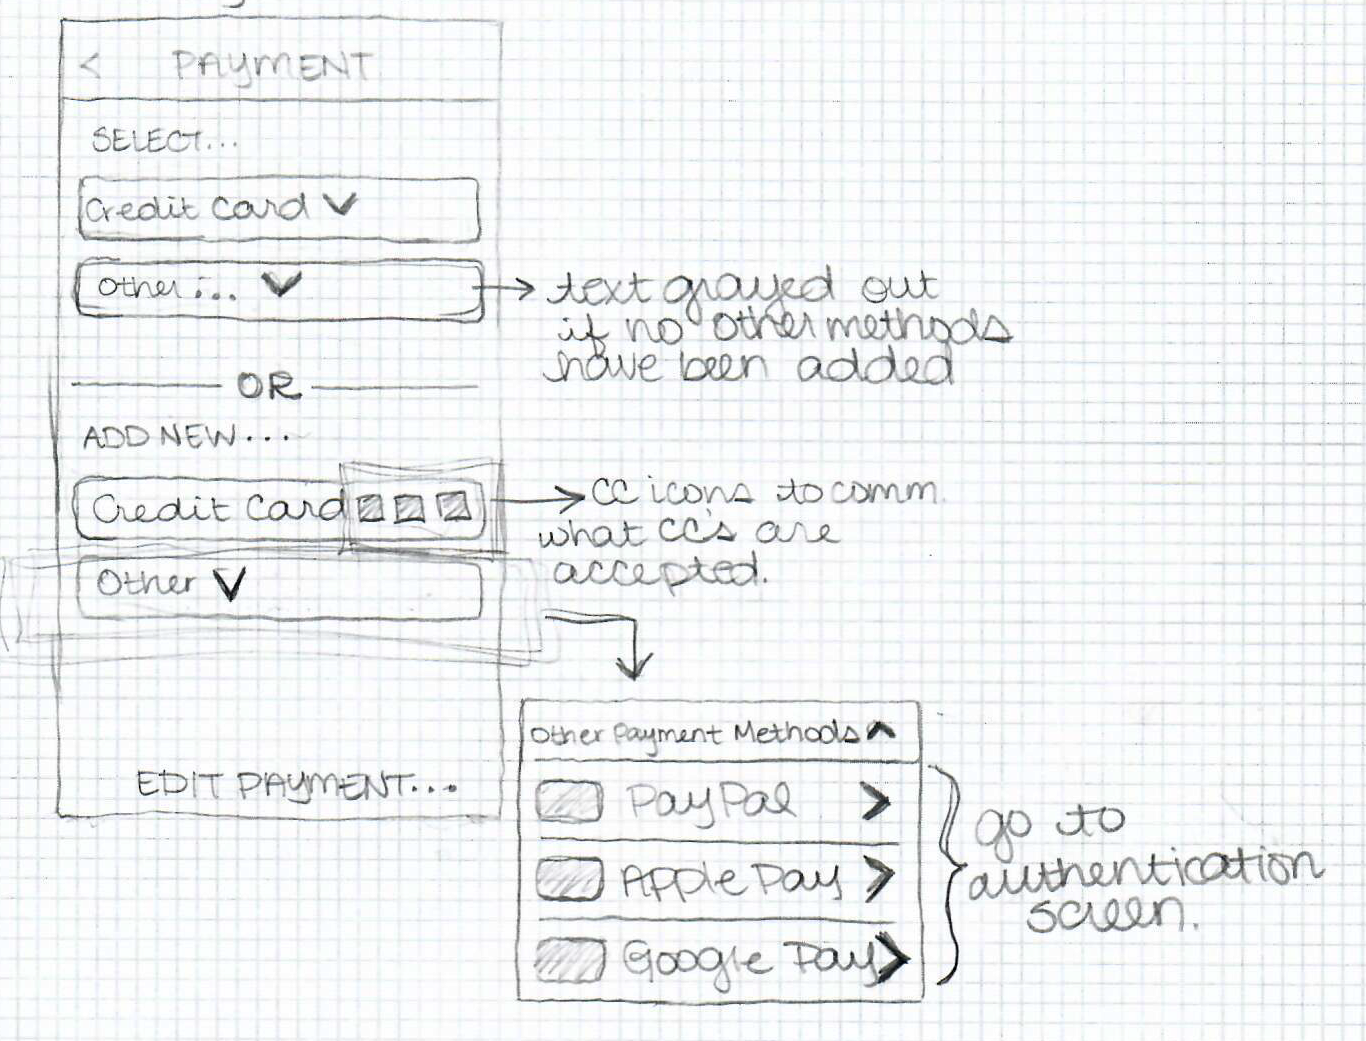 < PAYMENT
SELECT...
Credit Card
Other...
text grayed out
if no other methods
have been added
OR
ADD NEW...
Credit Card
CC icons to comm.
what CC's are
accepted.
Other
EDIT PAYMENT...
Other Payment Methods
PayPal
Apple Pay
Google Pay
go to
authentication
screen.